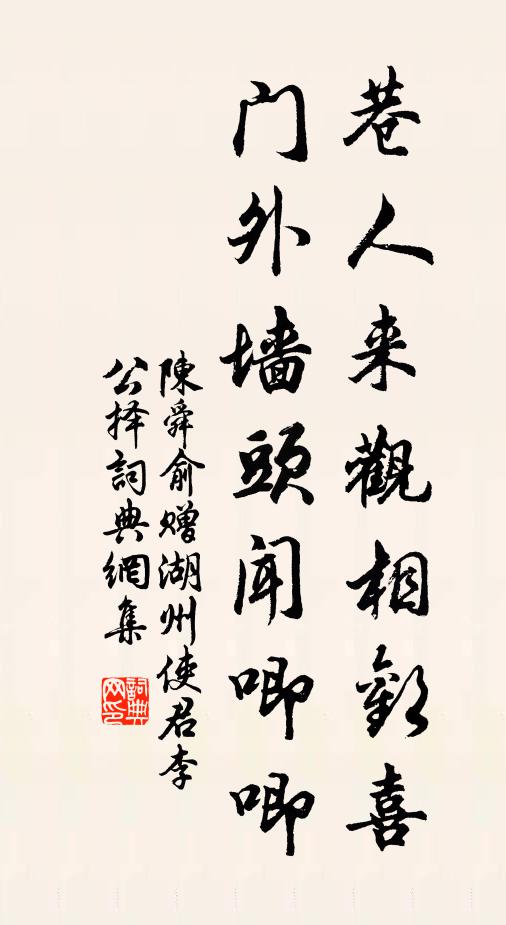 巷人来觀相歡喜
门外墙頭闻唧唧
陳舜俞赠湖州使君李
公择詞典網集
詞典网印